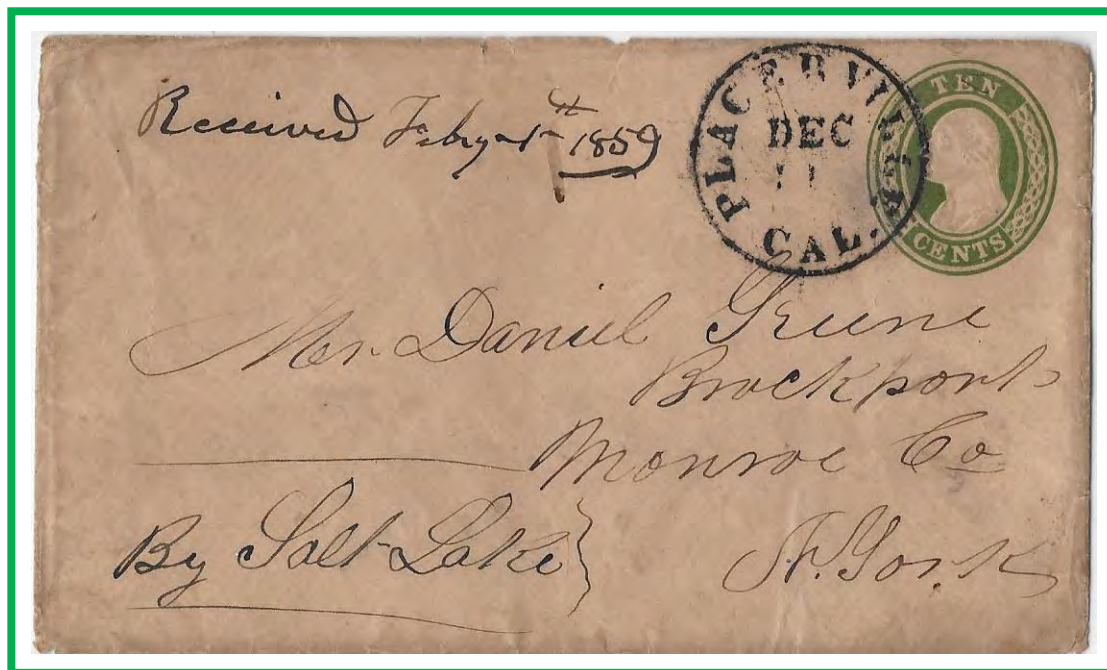 Received Feby 1th 1859
PLACERVILLE
DEC
11
CAL.
TEN
CENTS
Mr. Daniel Greene
Brockport
Monroe Co
By Salt Lake
N. York